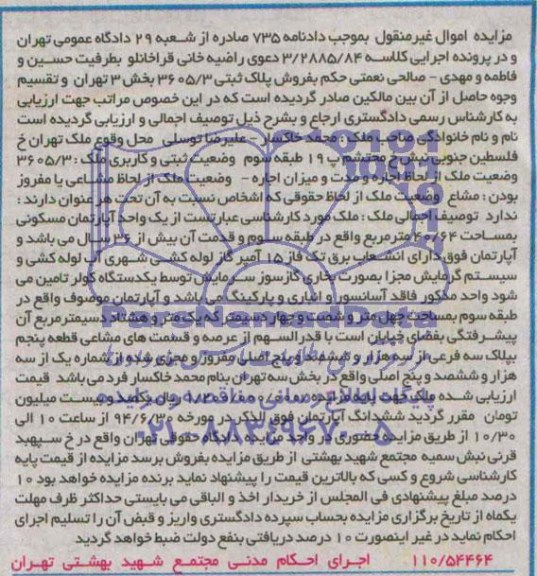 مزایده اموال غیرمنقول بموجب دادنامه ۷۳۵ صادره از شعبه ۲۹ دادگاه عمومی تهران
و در پرونده اجرایی کلاسه ۳/۲۸۸۵/۸۴ دعوی راضیه خانی قراخانلو بطرفیت حسین و
فاطمه و مهدی - صالحی نعمتی حکم بفروش پلاک ثبتی ۳۶۰۵/۳ بخش ۳ تهران و تقسیم
وجوه حاصل از آن بین مالکین صادر گردیده است که در این خصوص مراتب جهت ارزیابی
به کارشناس رسمی دادگستری ارجاع و بشرح ذیل توصیف اجمالی و ارزیابی گردیده است
نام و نام خانوادگی صاحب ملک: محمد خاکسار - علیرضا توسلی محل وقوع ملک تهران خ
فلسطین جنوبی نبش خ محتشم پ ۱۹ طبقه سوم وضعیت ثبتی و کاربری ملک: ۳۶۰۵/۳
وضعیت ملک از لحاظ اجاره و مدت و میزان اجاره - وضعیت ملک از لحاظ مشاعی یا مفروز
بودن: مشاع وضعیت ملک از لحاظ حقوقی که اشخاص نسبت به آن تحت هر عنوان دارند:
ندارد توصیف اجمالی ملک: ملک مورد کارشناسی عبارتست از یک واحد آپارتمان مسکونی
بمساحت ۴۰/۶۴ مترمربع واقع در طبقه سوم و قدمت آن بیش از ۳۶ سال می باشد و
آپارتمان فوق دارای انشعاب برق تک فاز ۱۵ آمپر گاز لوله کشی شهری آب لوله کشی و
سیستم گرمایش مجزا بصورت بخاری گازسوز سرمایش توسط یکدستگاه کولر تامین می
شود واحد مذکور فاقد آسانسور و انباری و پارکینگ می باشد و آپارتمان موصوف واقع در
طبقه سوم بمساحت چهل متر و شصت و چهار دسیمتر که یک متر و هشتاد دسیمتر مربع آن
پیشرفتگی بفضای خیابان است با قدرالسهم از عرصه و قسمت های مشاعی قطعه پنجم
بپلاک سه فرعی از سه هزار و ششصد و پنج اصلی مفروز و مجزی شده از شماره یک از سه
هزار و ششصد و پنج اصلی واقع در بخش سه تهران بنام محمد خاکسار فرد می باشد قیمت
ارزیابی شده ملک جهت پایه مزایده ریال یکصد و بیست میلیون
تومان مقرر گردید ششدانگ آپارتمان فوق الذکر در مورخه ۹۴/۶/۳۰ از ساعت ۱۰ الی
۱۰/۳۰ از طریق مزایده حضوری در واحد مزایده دادگاه حقوقی تهران واقع در خ سپهبد
قرنی نبش سمیه مجتمع شهید بهشتی از طریق مزایده بفروش برسد مزایده از قیمت پایه
کارشناسی شروع و کسی که بالاترین قیمت را پیشنهاد نماید برنده مزایده خواهد بود ۱۰
درصد مبلغ پیشنهادی فی المجلس از خریدار اخذ و الباقی می بایستی حداکثر ظرف مهلت
یکماه از تاریخ برگزاری مزایده بحساب سپرده دادگستری واریز و قبض آن را تسلیم اجرای
احکام نماید در غیر اینصورت ۱۰ درصد دریافتی بنفع دولت ضبط خواهد گردید
۱۱۰/۵۴۴۶۴ اجرای احکام مدنی مجتمع شهید بهشتی تهران